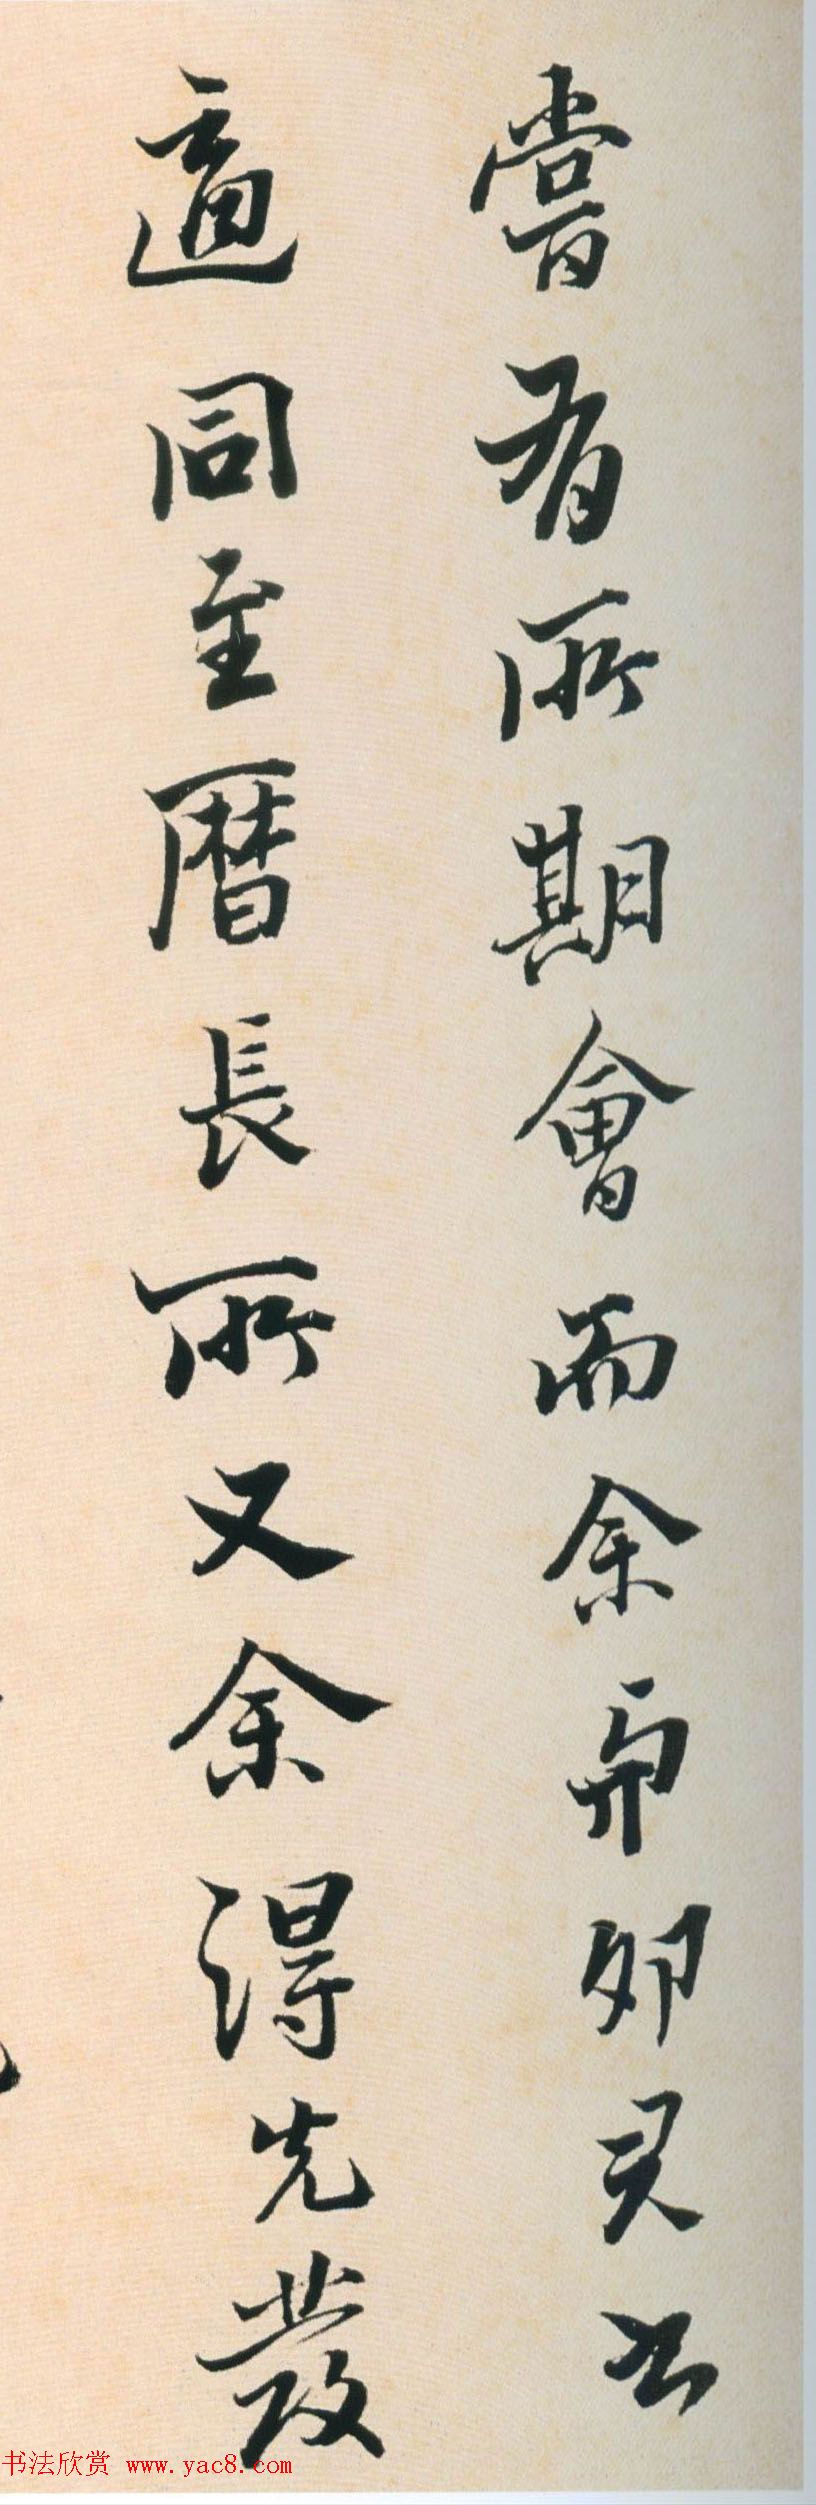 嘗有所期會而余與卯君書
適同至曆長所又余得先發
书法欣赏 www.yac8.com